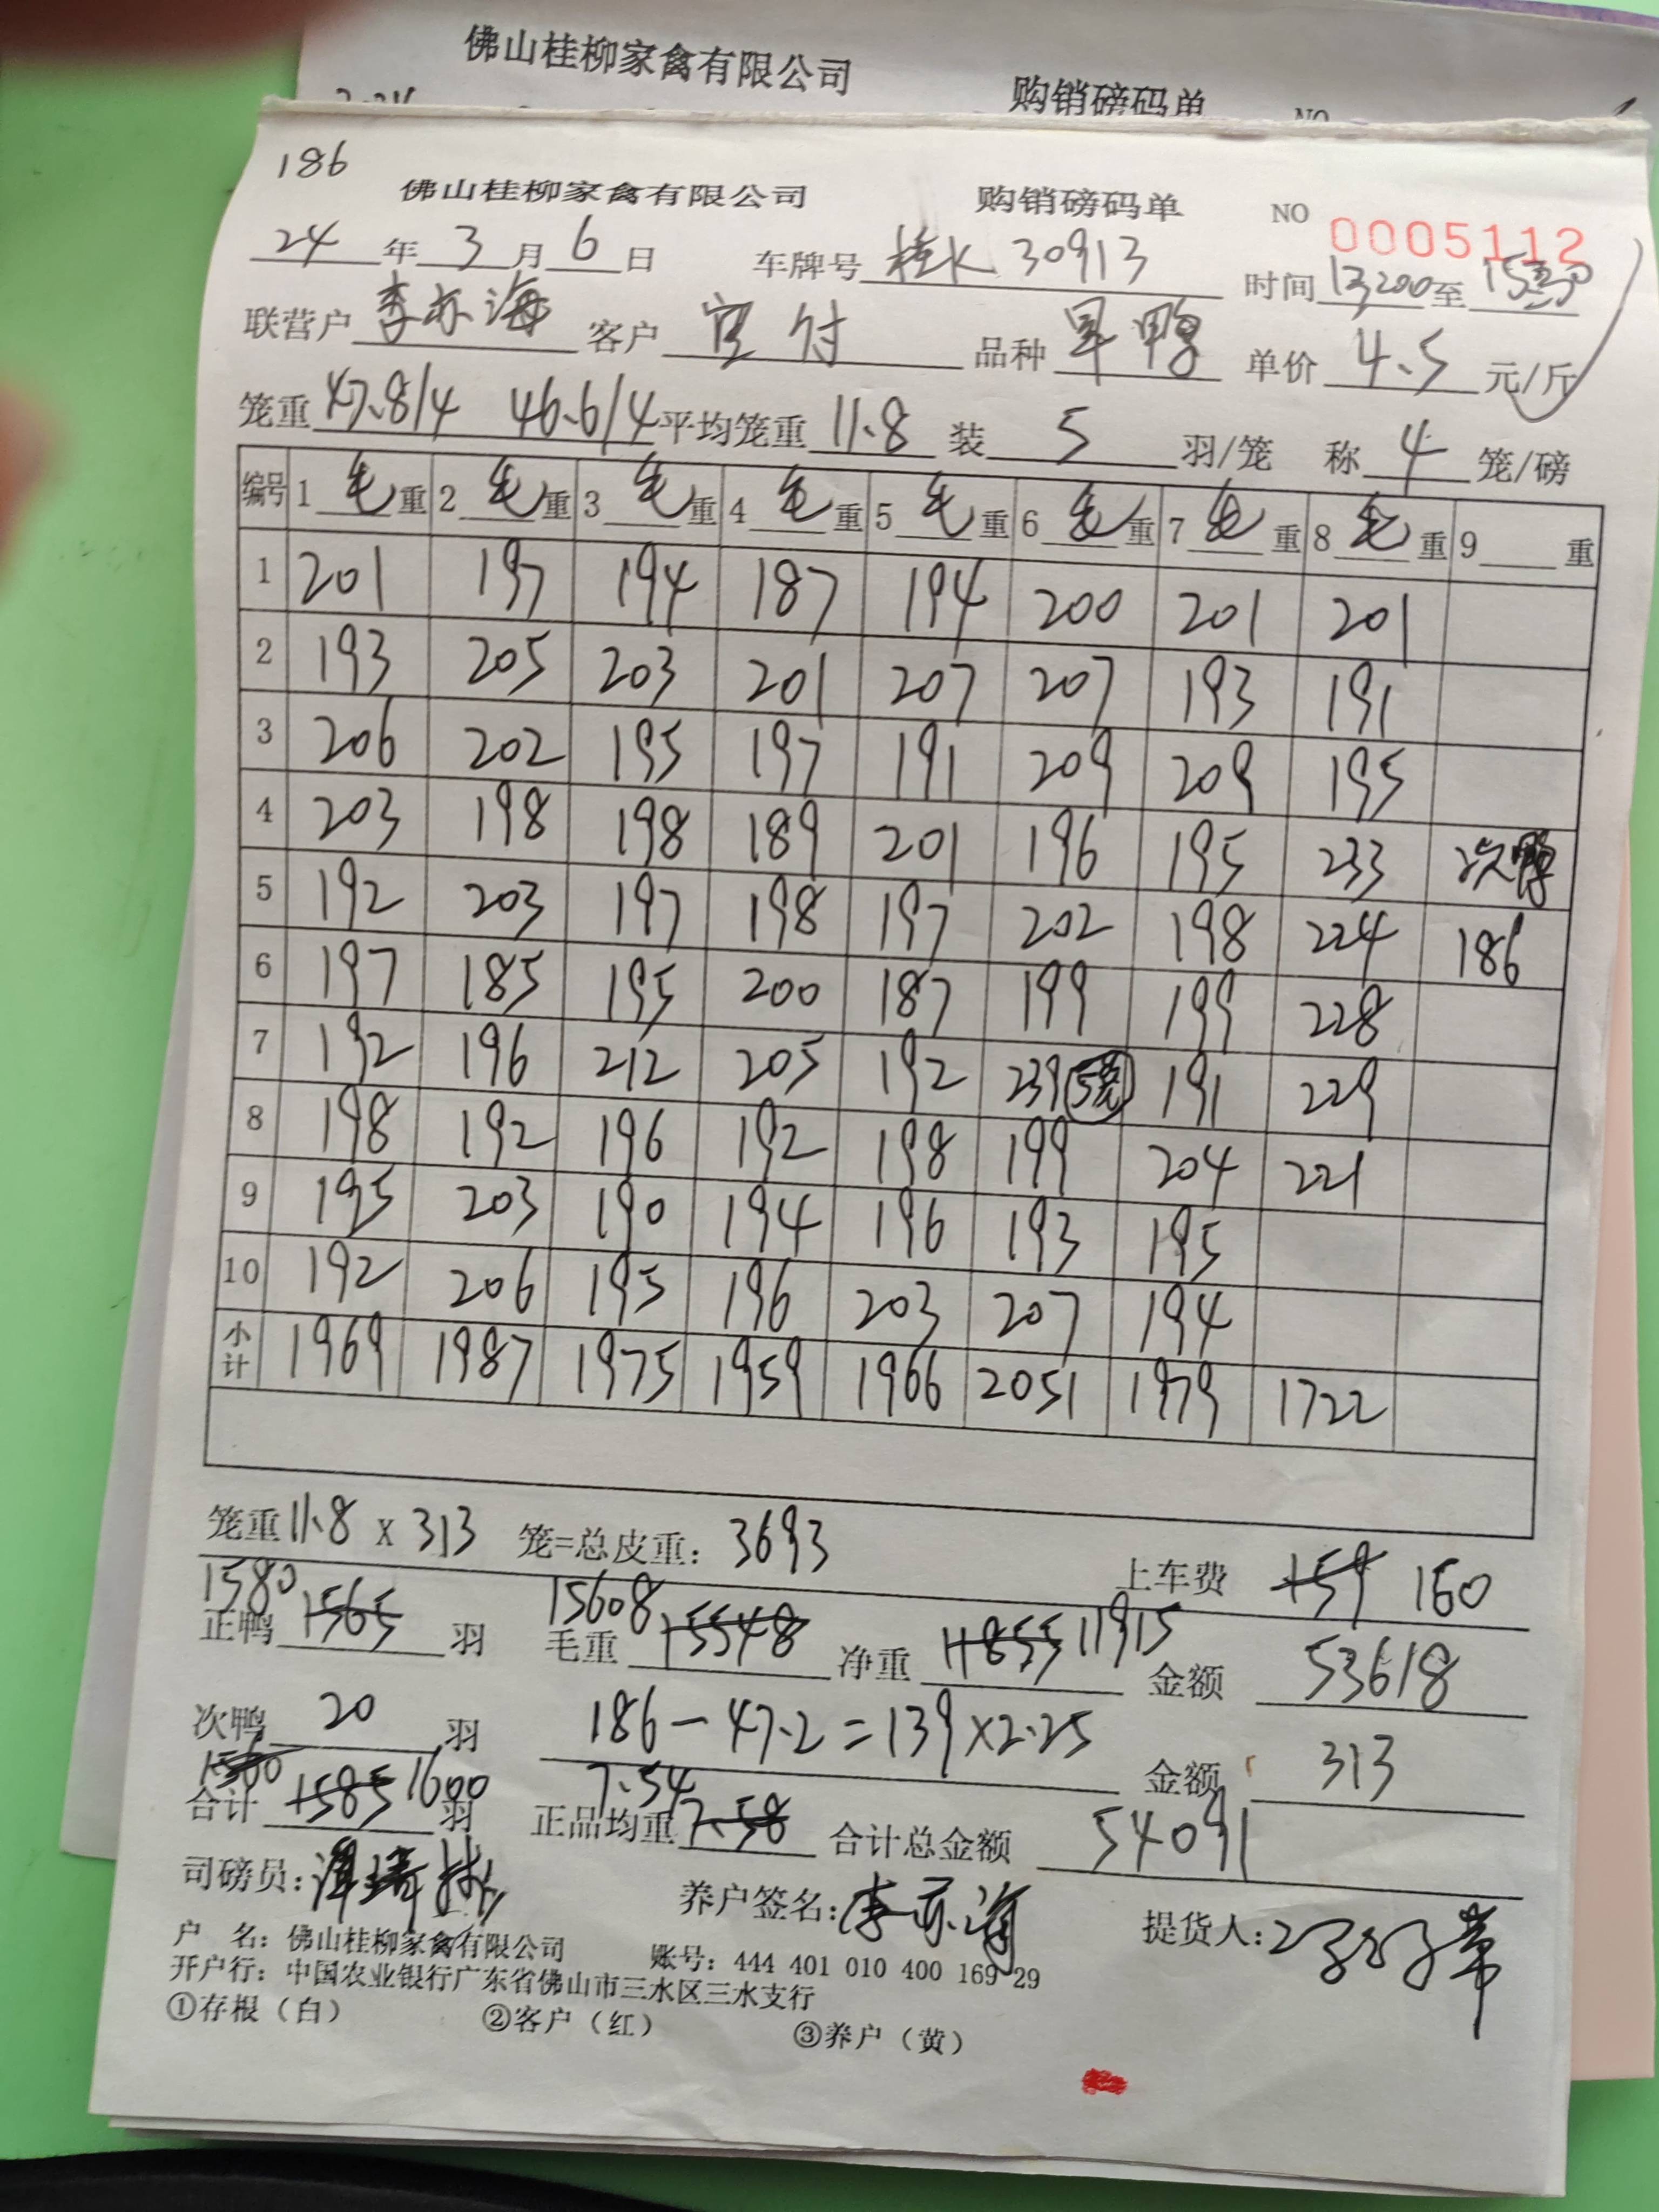 佛山桂柳家禽有限公司 购销磅码单 NO
186
佛山桂柳家禽有限公司 购销磅码单 NO 0005112
24年3月6日 车牌号桂K 30913 时间 至
联营户李亦海 客户 付 品种旱鸭 单价4.5元/斤
笼重47.8/4 46.6/4 平均笼重11.8 装5羽/笼 称4笼/磅
编号 1毛重 2毛重 3毛重 4毛重 5毛重 6毛重 7毛重 8毛重 9 重
1 201 197 194 187 194 200 201 201
2 193 205 203 201 207 207 193 191
3 206 202 195 197 191 209 209 195
4 203 198 198 189 201 196 195 233 次鸭
5 192 203 197 198 197 202 198 224 186
6 197 185 195 200 187 199 199 228
7 192 196 212 205 192 239 191 229
8 198 192 196 192 198 199 204 221
9 195 203 190 194 196 193 195
10 192 206 195 196 203 207 194
小计 1969 1987 1975 1959 1966 2051 1979 1722
笼重11.8 X 313 笼=总皮重: 3693 上车费 159 160
1580 15608
正鸭1565羽 毛重15548 净重11855 11915 金额53618
次鸭20羽 186-47.2=139×2.25 金额313
1560 7.54
合计1585 1600羽 正品均重7.58 合计总金额54091
司磅员: 养户签名:李亦海 提货人:
户 名: 佛山桂柳家禽有限公司 账号: 444 401 010 400 169 29
开户行: 中国农业银行广东省佛山市三水区三水支行
①存根(白) ②客户(红) ③养户(黄)